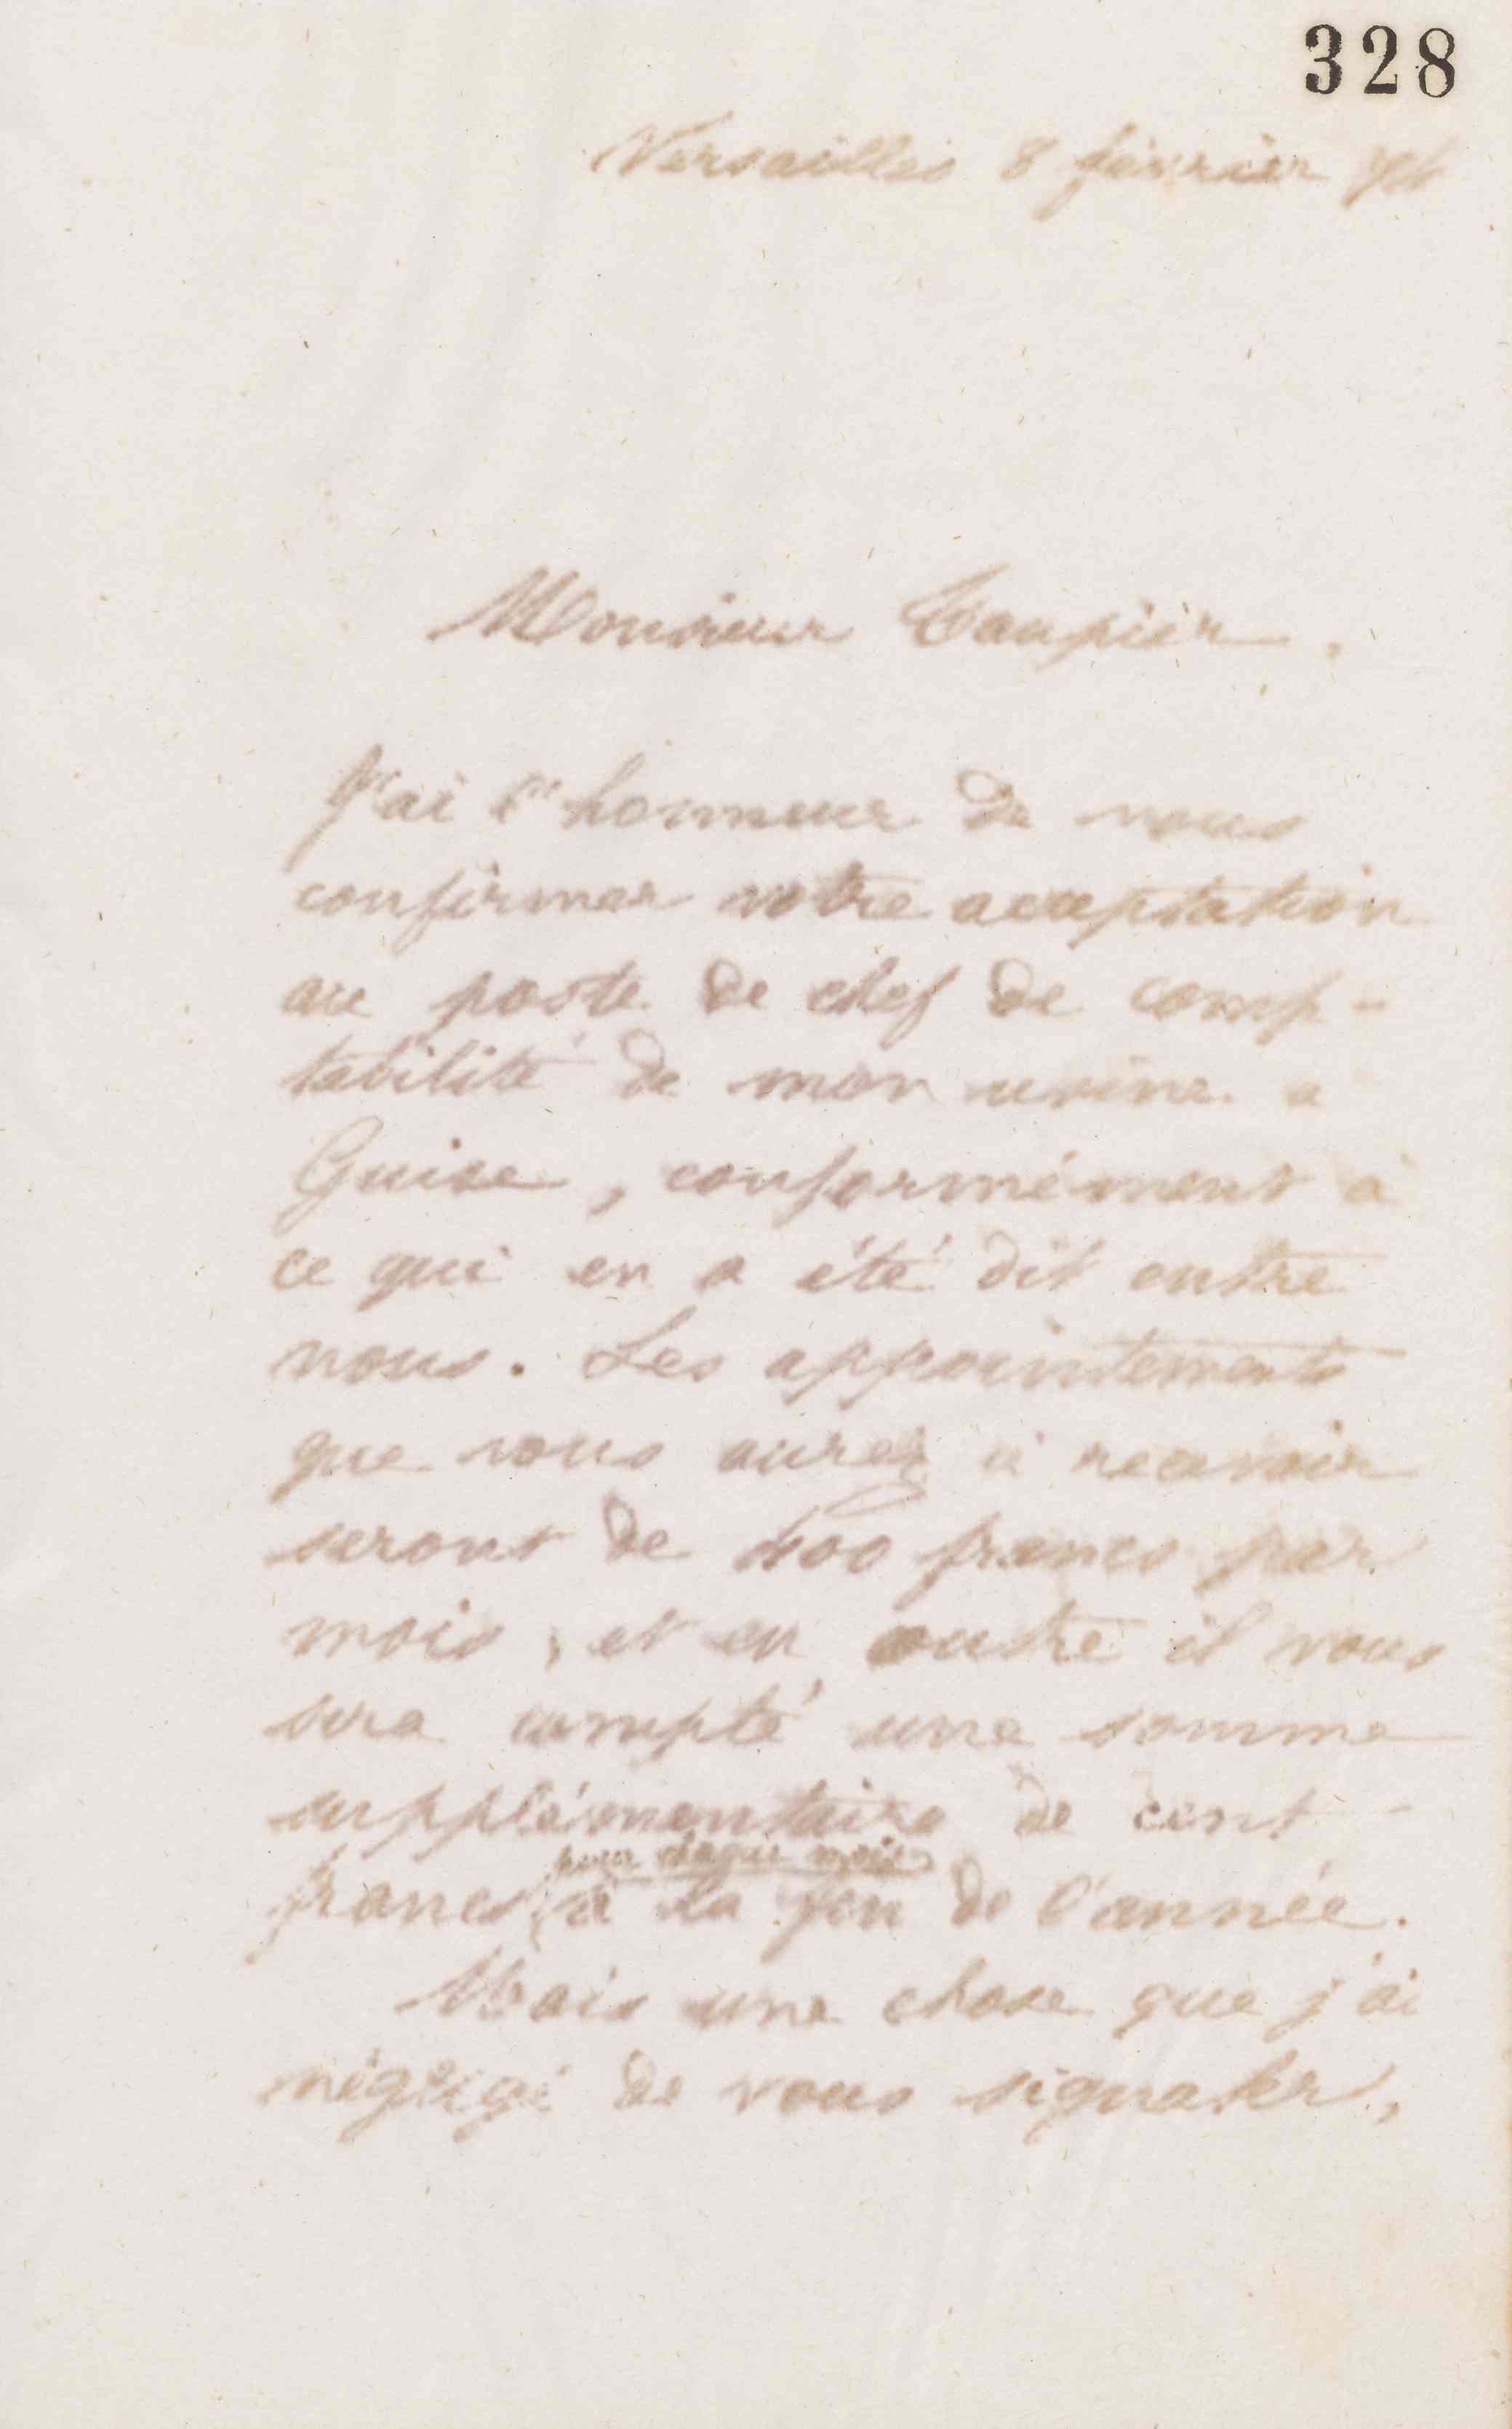 328
Versailles 8 février 74
Monsieur Taupier,
J'ai l'honneur de vous
confirmer votre acceptation
au poste de chef de comp-
tabilité de mon usine à
Guise, conformément à
ce qui en a été dit entre
nous. Les appointements
que vous aurez à recevoir
seront de 400 francs par
mois, et en outre il vous
sera compté une somme
supplémentaire de cent
pour chaque mois
francs à la fin de l'année.
Mais une chose que j'ai
négligé de vous signaler,